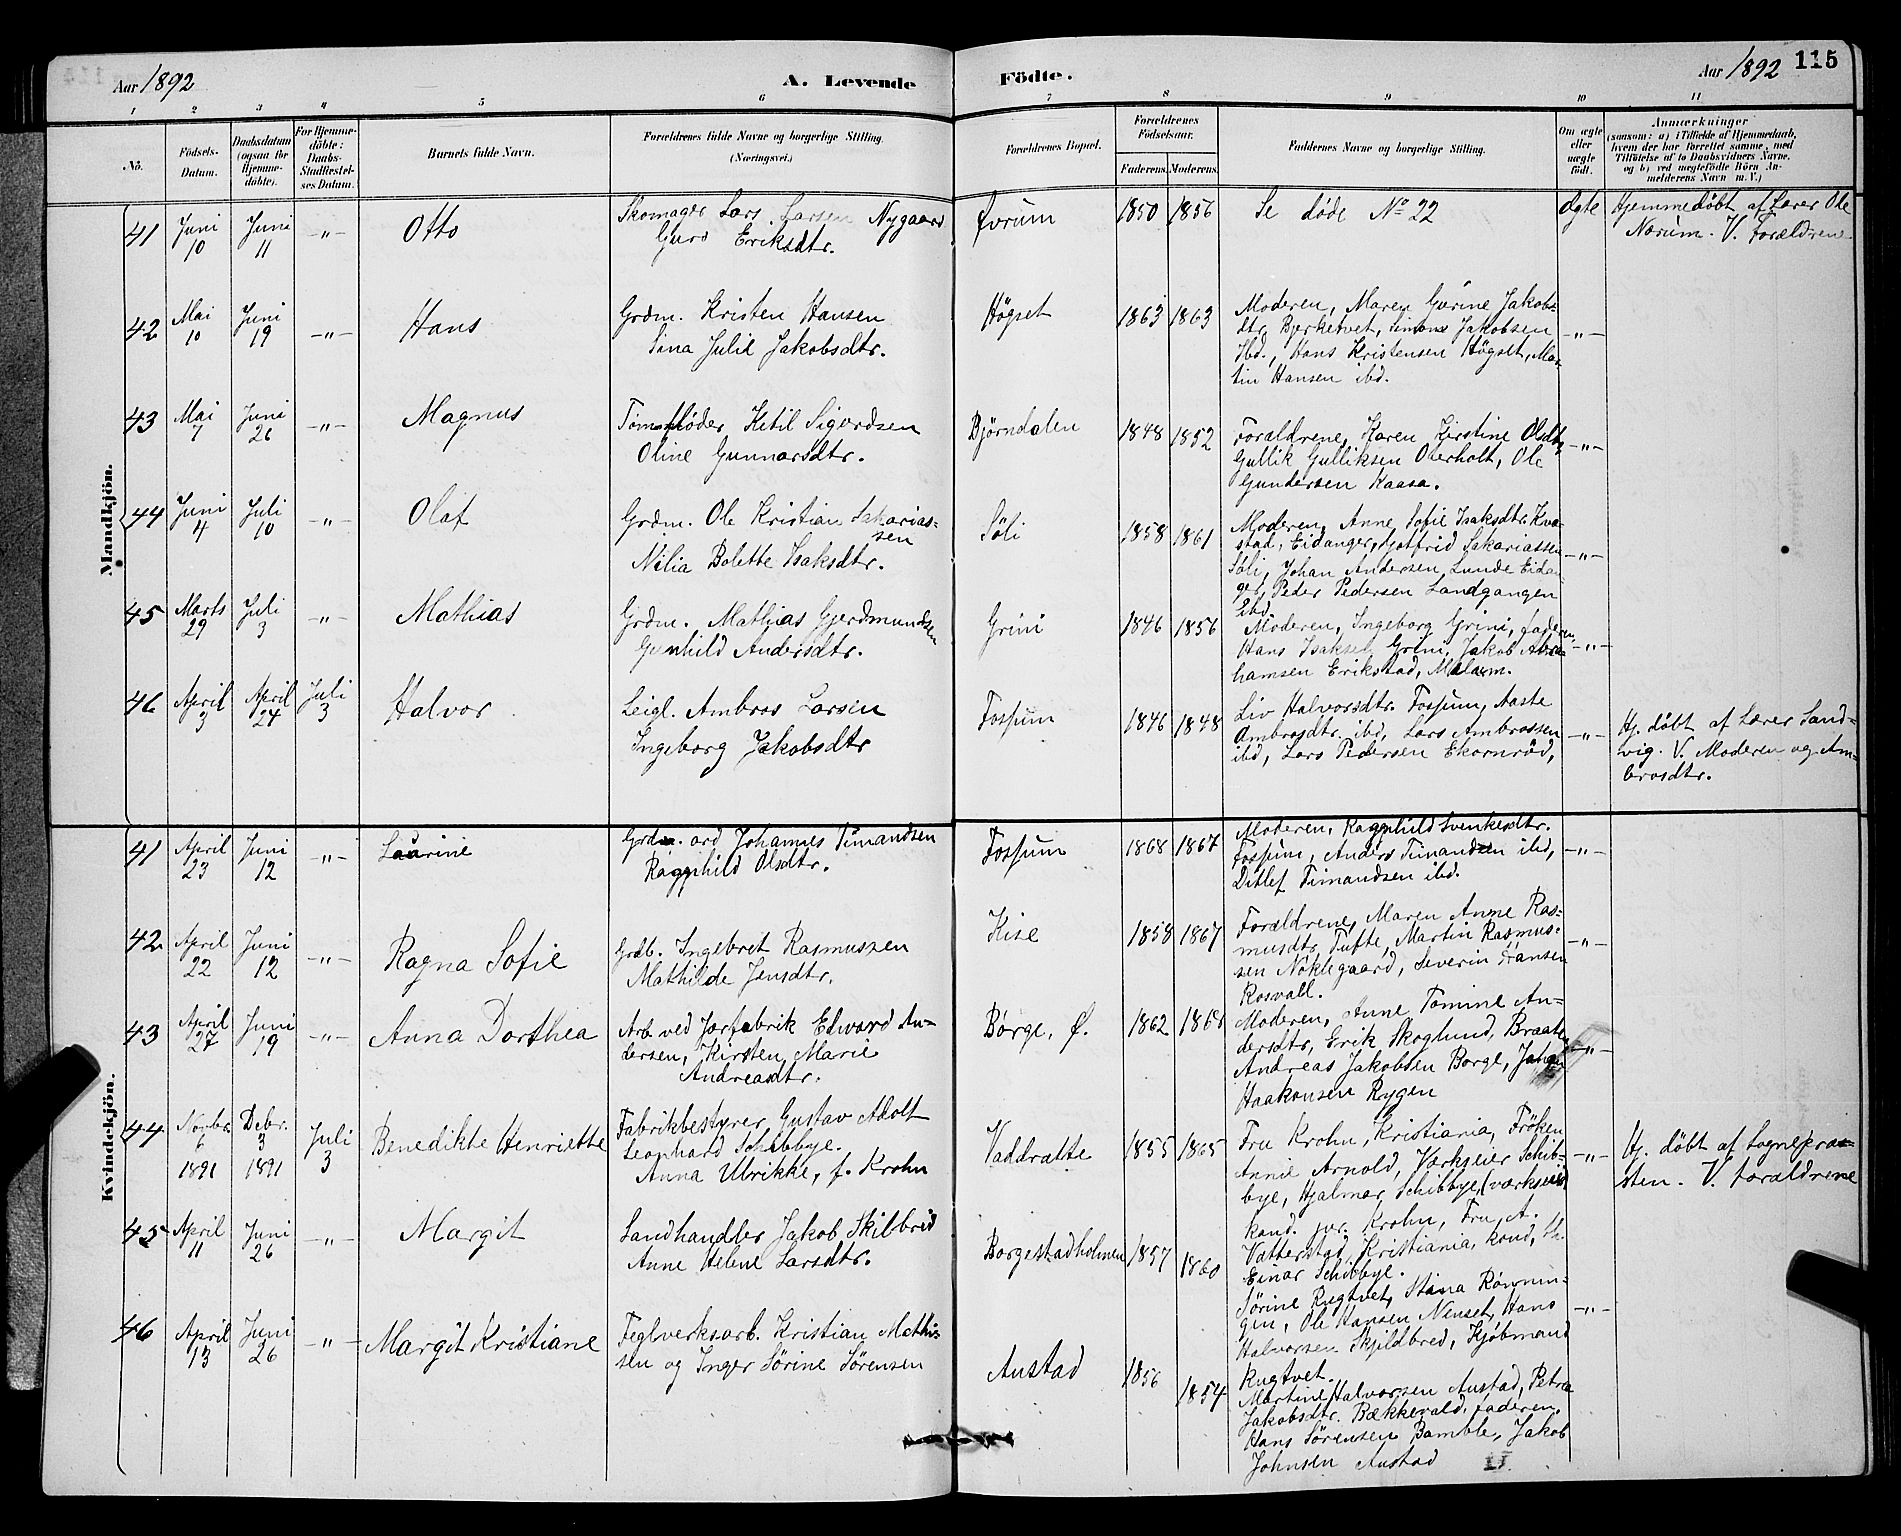 Aar 1892
A. Levende
Födte.
Aar 1892
115
1 2 3 4 5 6 7 8 9 10 11
No.
Födsels-Datum.
Daabsdatum (ogsaa for Hjemme-döbte).
For Hjemme-döbte: Daabs-Stadfæstel-ses Datum.
Barnets fulde Navn.
Forældrenes fulde Navne og borgerlige Stilling. (Næringsvei.)
Forældrenes Bopæl.
Forældrenes Födselsaar.
Faderens. Moderens.
Faddernes Navne og borgerlige Stilling.
Om ægte eller uægte födt.
Anmærkninger
(saasom: a) i Tilfælde af Hjemmedaab,
hvem der har forrettet samme, med
Tilföielse af to Daabsvidners Navne,
og b) ved uægtefödte Börn An-
melderens Navn m. V.)
Mandkjön.
41 Juni 10 Juni 11 -"- Otto
Skomager Lars Larsen Nygaard
Guro Eriksdtr.
Övrum 1850 1856
Se døde No 22
Ægte
Hjemmedöbt af Lærer Ole
Nærum. V. Forældrene
42 Mai 10 Juni 19 -"- Hans
Grdm. Kristen Hansen
Sina Julie Jakobsdtr.
Högset 1863 1863
Moderen, Maren Gurine Jakobs-
dtr. Bjerketvet, Simons Jakobsen
Ibd., Hans Kristensen Högset, Mar-
tin Hansen ibd.
-"-
43 Mai 7 Juni 26 -"- Magnus
Tömmfløder Ketil Sigurdsen
Oline Gunnarsdtr.
Björndalen 1848 1852
Forældrene, Karen Kirstine Olsdtr,
Gullik Gulliksen Oterholt, Ole
Gundersen Kaasa.
-"-
44 Juni 4 Juli 10 -"- Olaf
Grdm. Ole Kristian Sakarias-
sen
Nilia Bolette Isaksdtr.
Søli 1858 1861
Moderen, Anne Sofie Isaksdtr. Kva-
stad, Eidanger, Gotfrid Sakariassen
Søli, Johan Andersen Lunde Eidan-
ger, Peder Pedersen Landgangen
Ibd.
-"-
45 Marts 29 Juli 3 -"- Mathias
Grdm. Mathias Gjerdmundsen
Gunhild Andersdtr.
Grini 1846 1856
Moderen, Ingeborg Grini, faderen,
Hans Isaksen Grini, Jakob Abra-
hamsen Erikstad, Melum.
-"-
46 April 3 April 24 Juli 3 Halvor
Leigl. Ambros Larsen
Ingeborg Jakobsdtr
Fossum 1846 1848
Liv Halvorsdtr. Fossum, Aaste
Ambrosdtr. ibd, Lars Ambrossen
ibd, Lars Pedersen Ekornrød,
-"-
Hj. döbt af Lærer Sand-
vig. V. Moderen og Am-
brosdtr.
Kvindekjön.
41 April 23 Juni 12 -"- Laurine
Grdm. ord Johannes Timandsen
Ragnhild Olsdtr.
Fossum 1868 1867
Moderen, Ragnhild Svenkesdtr.
Fossum, Anders Timandsen ibd,
Ditlef Timandsen ibd.
-"-
42 April 22 Juni 12 -"- Ragna Sofie
Grdb. Ingebret Rasmussen
Mathilde Jensdtr.
Kise 1858 1867
Forældrene, Maren Anne Ras-
musdtr, Tufte, Martin Rasmus-
sen Nöklegaard, Severin Hansen
Rosvall.
-"-
43 April 27 Juni 19 -"- Anna Dorthea
Arb. ved Jærfabrik Edvard An-
dersen, Kirsten Marie
Andreasdtr.
Børge, Ø. 1862
Moderen, Anne Tomine An-
dersdtr, Erik Skoglund, Braaten
Andreas Jakobsen Borge, Johan
Haakonsen Rygen
-"-
44 Novbr. 6 1891 Debr. 3 1891 Juli 3 Benedikte Henriette
Fabrikbestyrer Gustav Adolf
Leonhard Schibbye.
Anna Ulrikke, f. Krohn
Vaddrætte 1855 1865
Fru Krohn, Kristiania, Frøken
Annie Arnold, Værkseier Schib-
bye, Hjalmar Schibbye (værkseier)
kand. jur. Krohn, Fru A.
Vatterstad, Kristiania, kand,
Einar Schibbye.
-"-
Hj. döbt af Sognepræ-
sten. V. Forældrene
45 April 11 Juni 26 -"- Margit
Landhandler Jakob Skilbred
Anne Helene Larsdtr.
Borgestadholmen 1857 1860
Sörine Rugtvet, Stina Rønnin-
gen, Ole Hansen Nenset, Hans
Halvorsen Skjildbred, Kjöbmand
Rugtvet.
-"-
46 April 13 Juni 26 -"- Margit Kristiane
Teglverksarb. Kristian Mathi-
sen og Inger Sörine Sörensen
Austad 1856 1854
Martine Halvorsen Austad, Petra
Jakobsdtr. Bækkevald, faderen,
Hans Sörensen Bamble, Jakob
Johnsen Austad